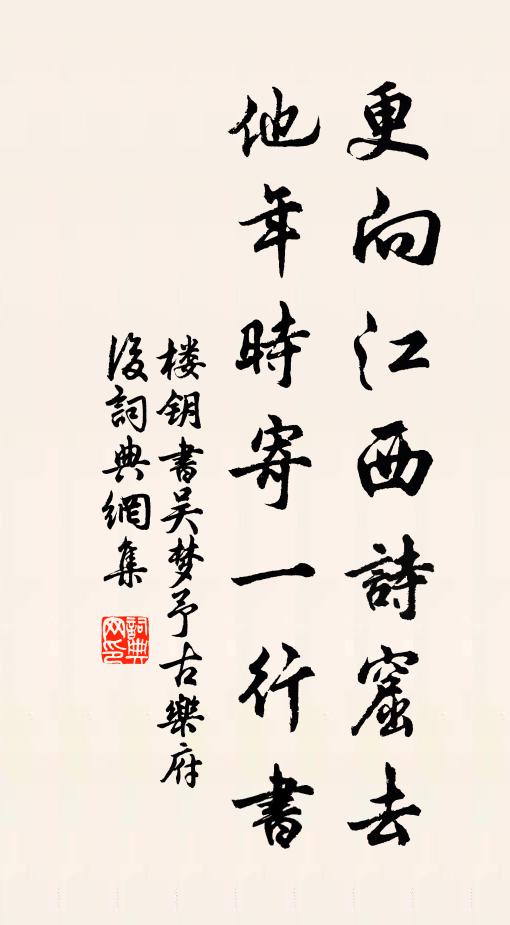 更向江西詩窟去
他年時寄一行書
楼钥書吴梦予古樂府
後詞典網集
詞典网印